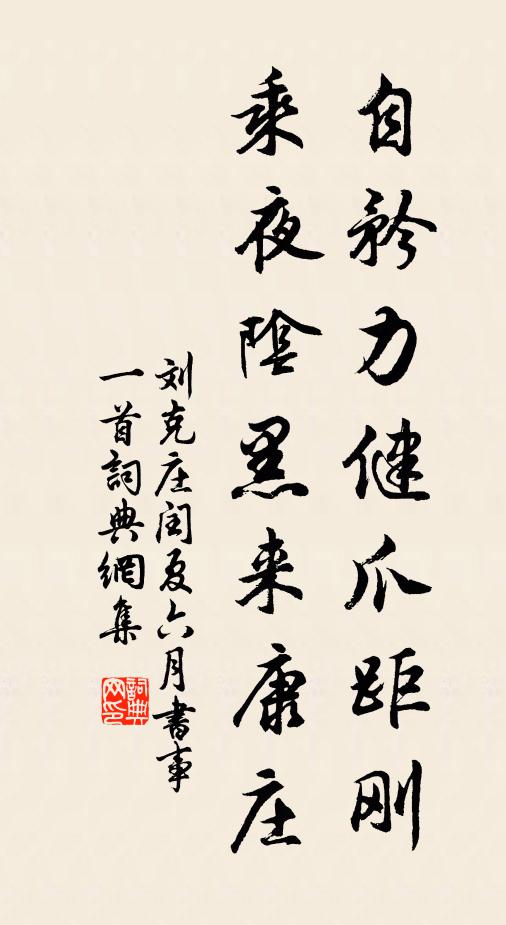 自矜力健爪距刚
乘夜阴黑来康庄
刘克庄闰夏六月书事
一首詞典網集
詞典网印